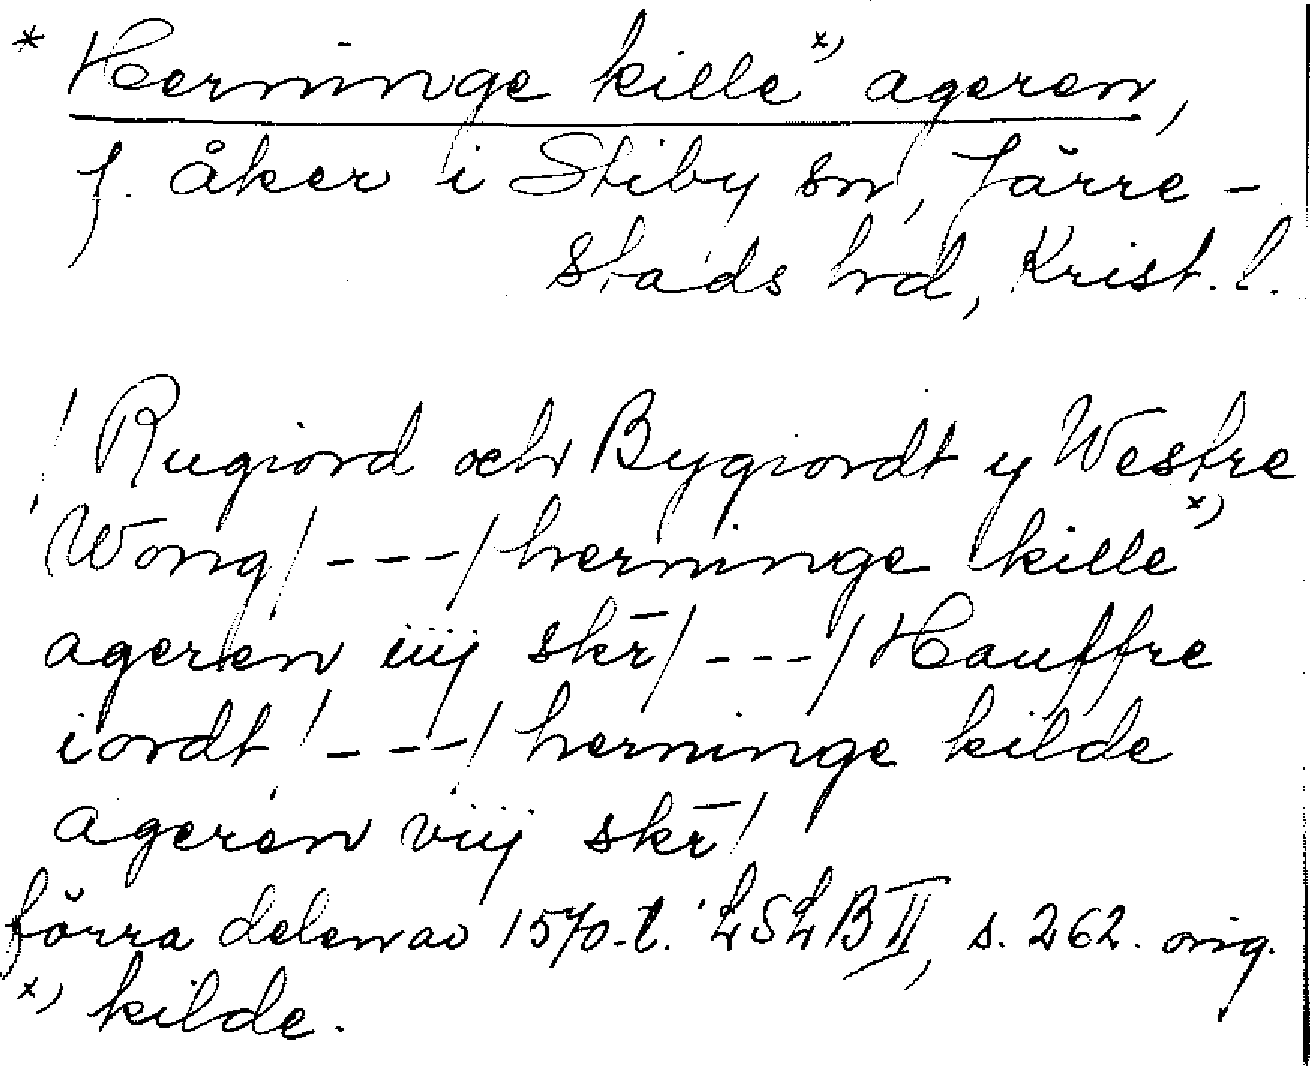 * Herninge kille x) ageren,
f. åker i Stiby sn, Järre-
stads hd, Krist. l.
/ Rugiord och Bygiordt y Westre
Wong/ --- / herninge kille x)
ageren iiij skr̄/ --- / Hauffre
iordt / --- / herninge kilde
ageren viij skr̄ /
förra delen av 1570-t. LSLB II, s. 262. orig.
x) kilde.